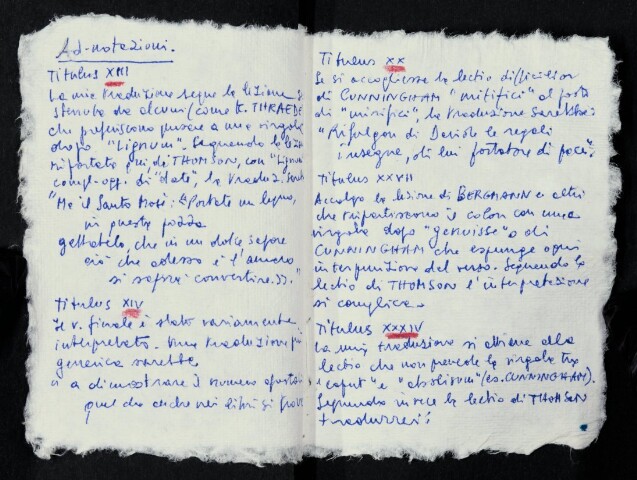 Ad-notazioni.
Titulus XIII
La mia traduzione segue la lezione so
stenuta da alcuni (come K. THRAEDE
che preferiscono porre una virgola
dopo "Lignum". Seguendo la lez
riportata qui da THOMSON, con "Lignum
compl. ogg. di "date", la traduz. sareb
"Ma il Santo Mosè: "Portate un legno,
in questa pozza
gettatelo, che in un dolce sapore
ciò che adesso è l'amaro
si saprà convertire.
Titulus XIV
Il v. finale è stato variamente
interpretato. Una traduzione più
generica sarebbe
a dimostrare il numero
quel che anche nei libri si trova
Titulus XX
Se si accogliesse la lectio difficilior
di CUNNINGHAM "mitifici" al posto
di "mirifici", la traduzione sarebbe:
"Rifulgon di Davide le regali
insegne, di lui portatore di pace".
Titulus XXVII
Accolgo la lezione di BERGMANN e altri
che ripartiscono il colon con una
virgola dopo "genuisse" o di
CUNNINGHAM che espunge ogni
interpunzione del verso. Seguendo la
lectio di THOMSON l'interpretazione
si complica.
Titulus XXXIV
La mia traduzione si attiene alla
lectio che non prevede la virgola tra
"caput" e (es. CUNNINGHAM).
Seguendo invece la lectio di THOMSON
tradurrei: